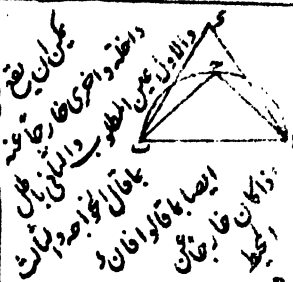 يمكن ان يقع
داخله واخرى خارجا عنه
والاول عين المطلوب والثاني باطل
بما قال الخواجه والثالث
ايضا بما قالوا فانه
اذا كان خارجا عن
المحيط